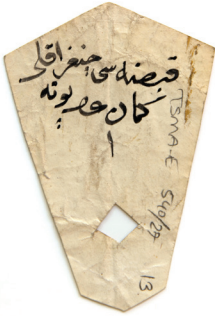 قبضه سی چنغراقلی
كمان عدد
١
TSMA-E 540/29
13